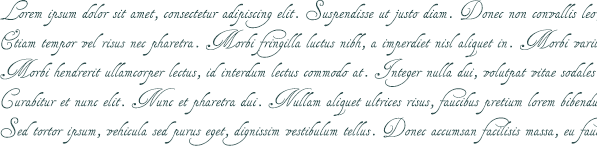 Lorem ipsum dolor sit amet, consectetur adipiscing elit. Suspendisse ut justo diam. Donec non convallis leo
Etiam tempor vel risus nec pharetra. Morbi fringilla luctus nibh, a imperdiet nisl aliquet in. Morbi variu
Morbi hendrerit ullamcorper lectus, id interdum lectus commodo at. Integer nulla dui, volutpat vitae sodales
Curabitur et nunc elit. Nunc et pharetra dui. Nullam aliquet ultrices risus, faucibus pretium lorem bibendu
Sed tortor ipsum, vehicula sed purus eget, dignissim vestibulum tellus. Donec accumsan facilisis massa, eu